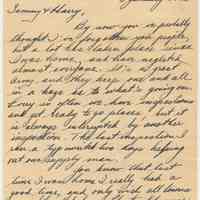 Jammy & Harry,
By now you've probably
thought I've forgotten you people,
but a lot has taken place since
I was home, and have neglected
almost everyone. It's a great
army, and they keep one and all
in a haze as to what's going on.
Every so often we have inspections
and get ready to go places, but it
is always interrupted by another
inspection. The last inspection I
saw a typewriter two days helping
out our supply men.
You know that last
time I was home I really had a
good time, and only wish all